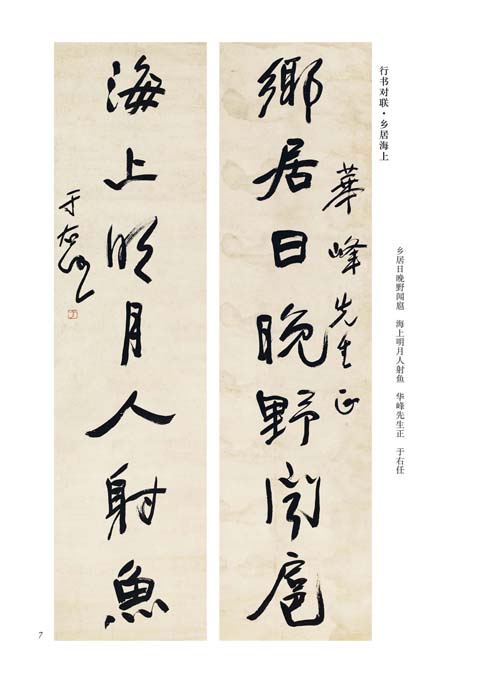 行书对联·乡居海上
乡居日晚野闻扈　海上明月人射鱼　华峰先生正　于右任
華峰先生正
鄉居日晚野闻扈
海上明月人射魚
于右任
7